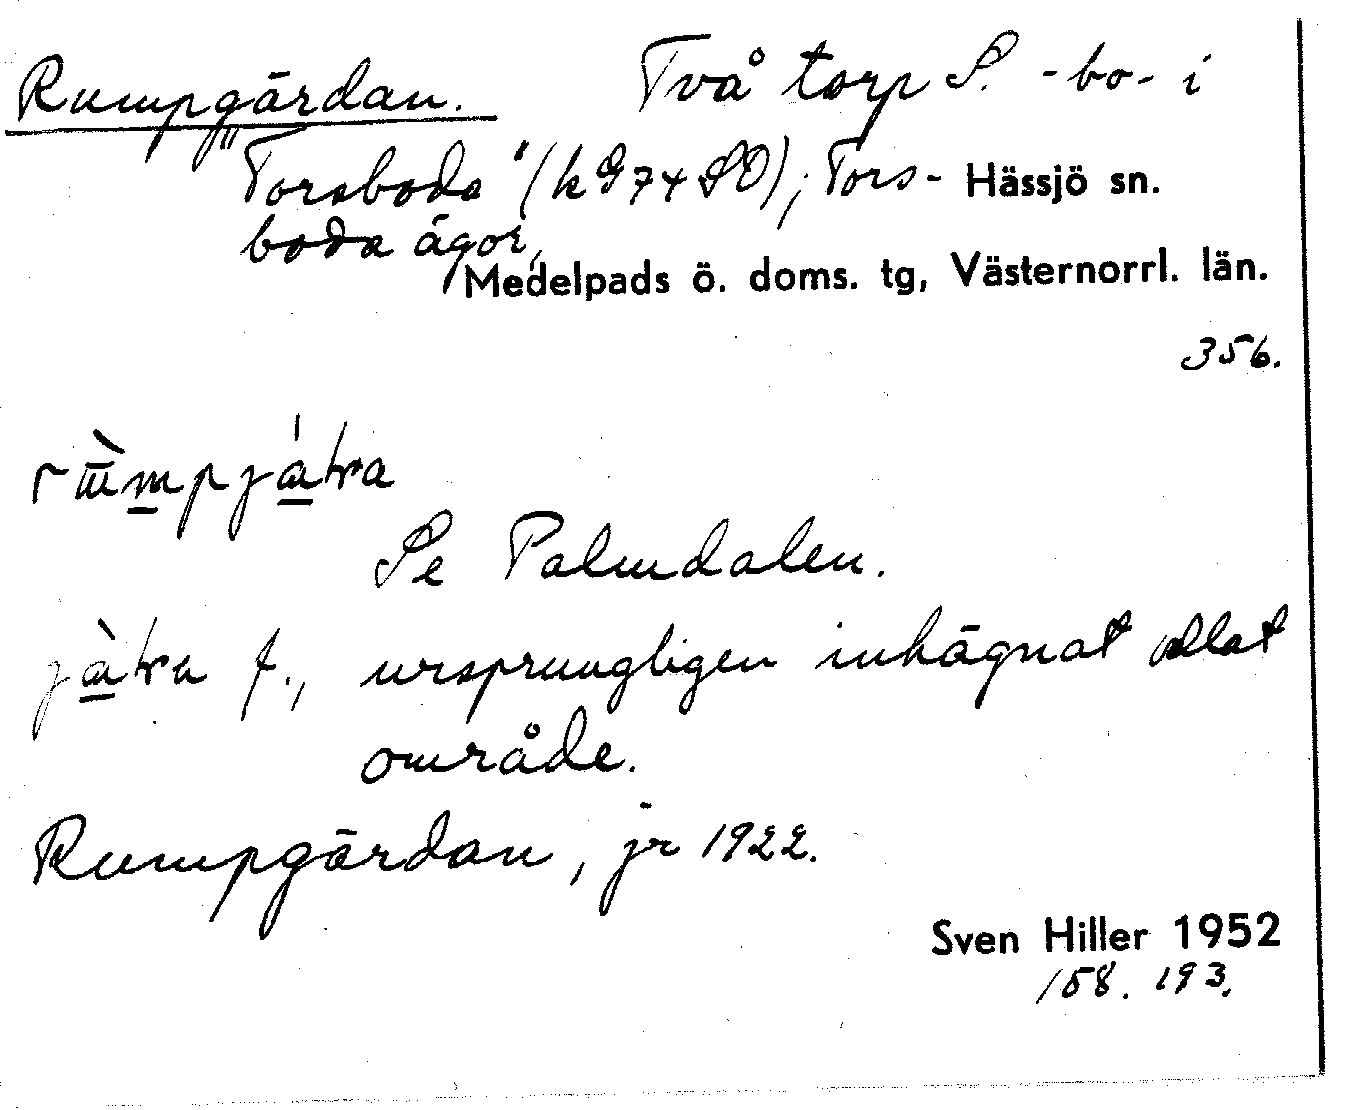 Rumpgärdan. Två torp S. -bo- i
"Torsboda" (k G 74 SO); Tors- Hässjö sn.
boda ägor,
Medelpads ö. doms. tg, Västernorrl. län.
356.
Se Palmdalen.
f., ursprungligen inhägnat odlat
område.
Rumpgärdan, jr 1922.
Sven Hiller 1952
158. 193.